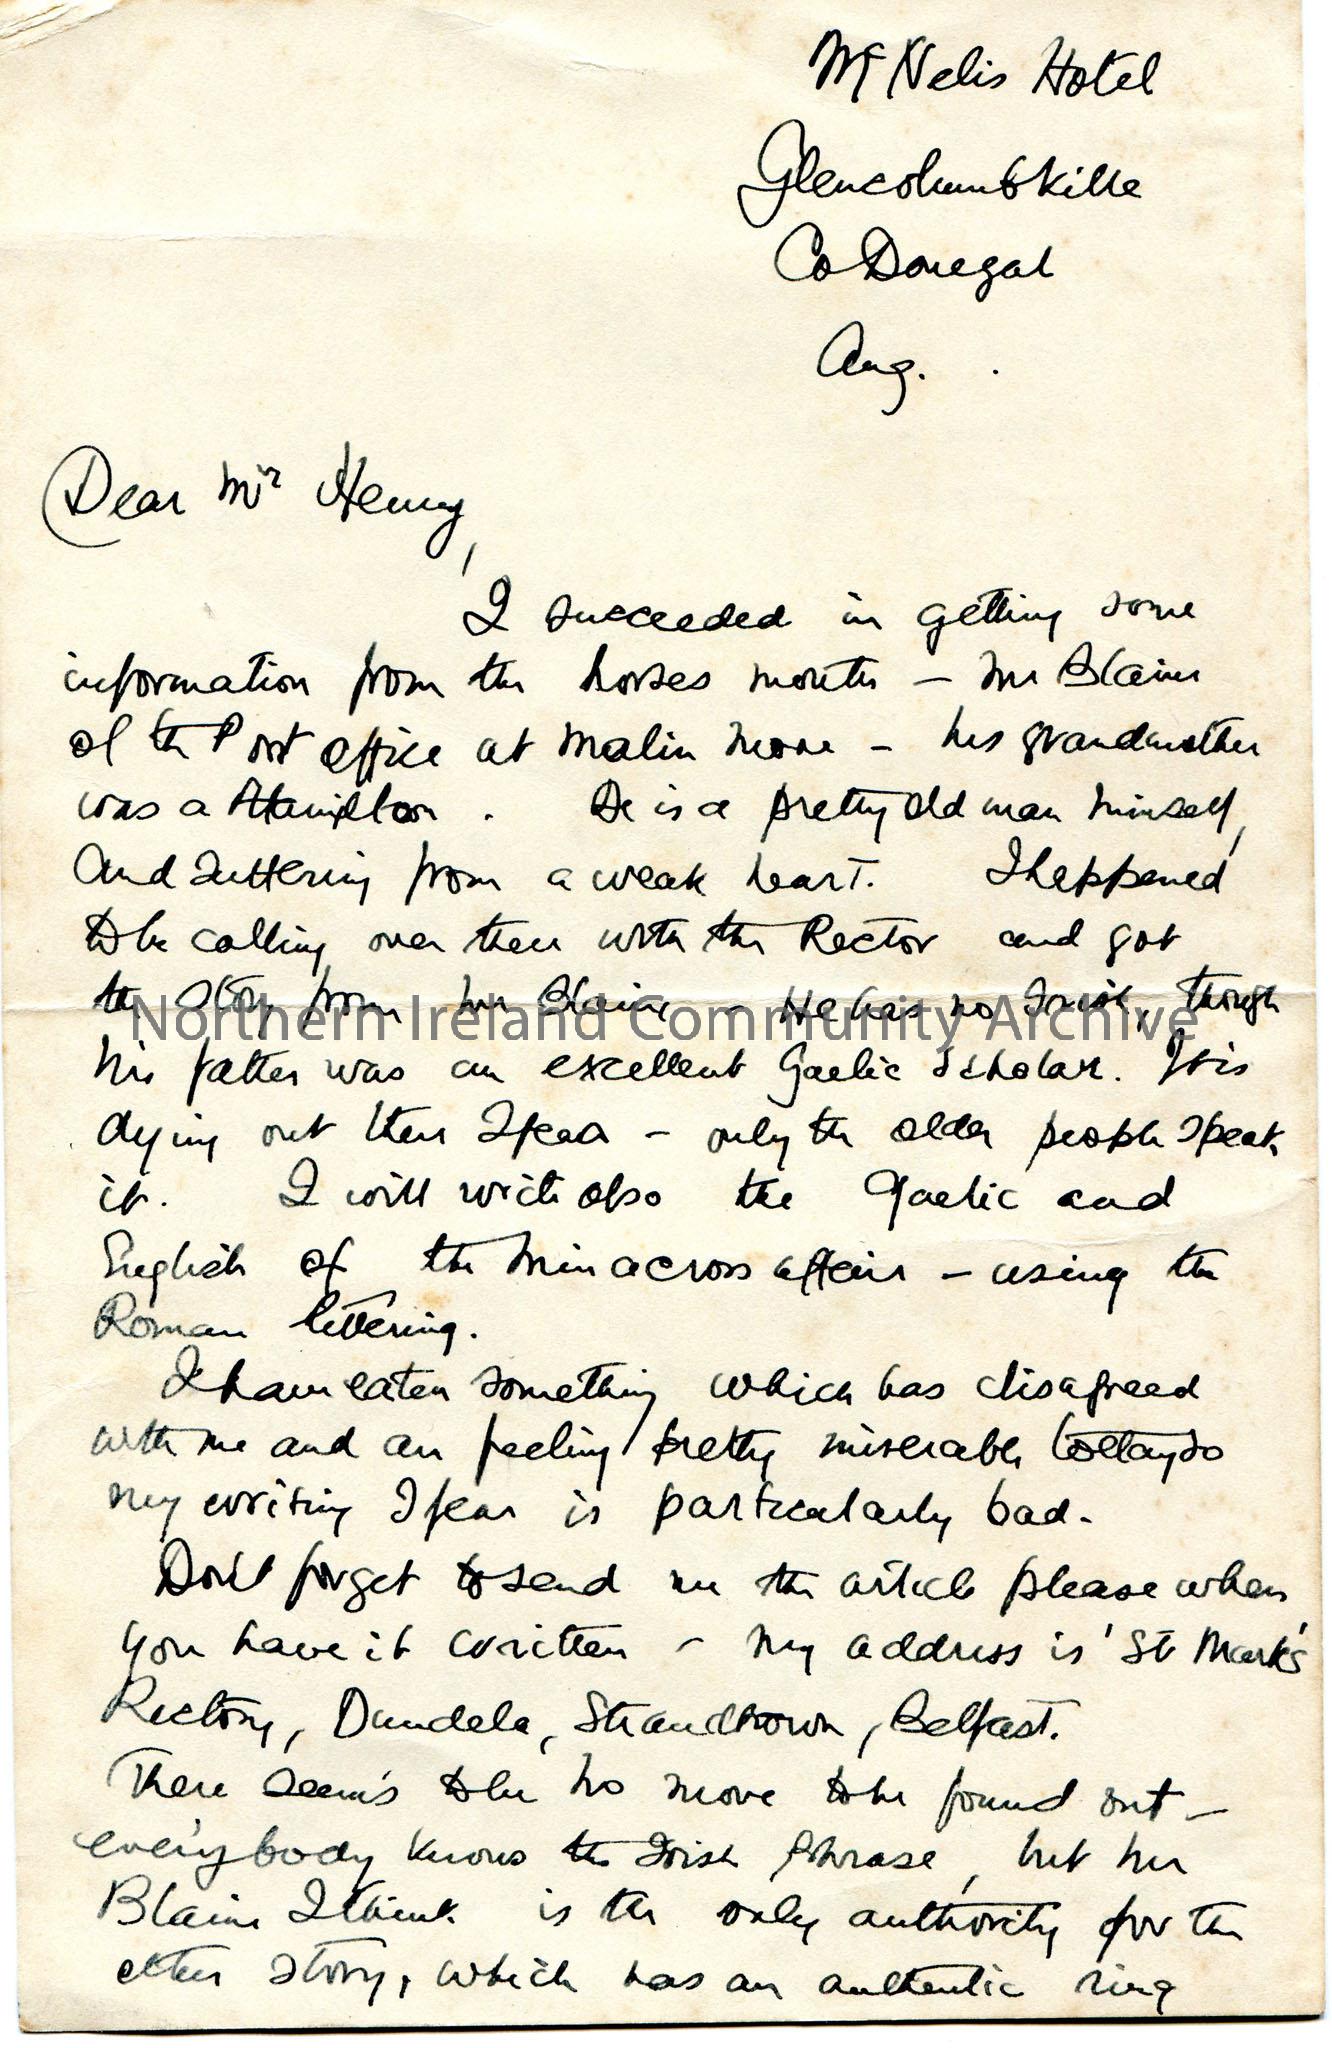 McNelis Hotel
Glencolumbkille
Co Donegal
Aug.
Dear Mr Henry,
I succeeded in getting some
information from the horses mouth – Mr Blaine
of the Post office at Malin More – his grandmother
was a Hamilton. He is a pretty old man himself,
and suffering from a weak heart. I happened
to be calling over there with the Rector and got
the story from Mr Blaine – He has no Irish, though
Northern Ireland Community Archive
his father was an excellent Gaelic Scholar. It is
dying out there I fear – only the older people speak
it. I will write also the Gaelic and
English of the Minacross affair – using the
Roman lettering.
I have eaten something which has disagreed
with me and am feeling pretty miserable today so
my writing I fear is particularly bad.
Don't forget to send me the article please when
you have it written – my address is 'St Mark's'
Rectory, Dundela, Strandtown, Belfast.
There seem's to be no more to be found out –
everybody knows the Irish Phrase, but Mr
Blaine I think is the only authority for the
other story, which has an authentic ring